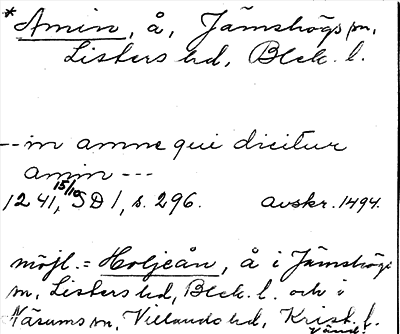 *Amin, å, Jämshögs sn,
Listers hd, Blek. l.
--in amne qui dicitur
amin ---
1241, 15/10 SD 1, s. 296. avskr. 1494.
möjl. = Holjeån, å i Jämshögs
sn, Listers hd, Blek. l. och i
Näsums sn, Villands hd, Krist. l.